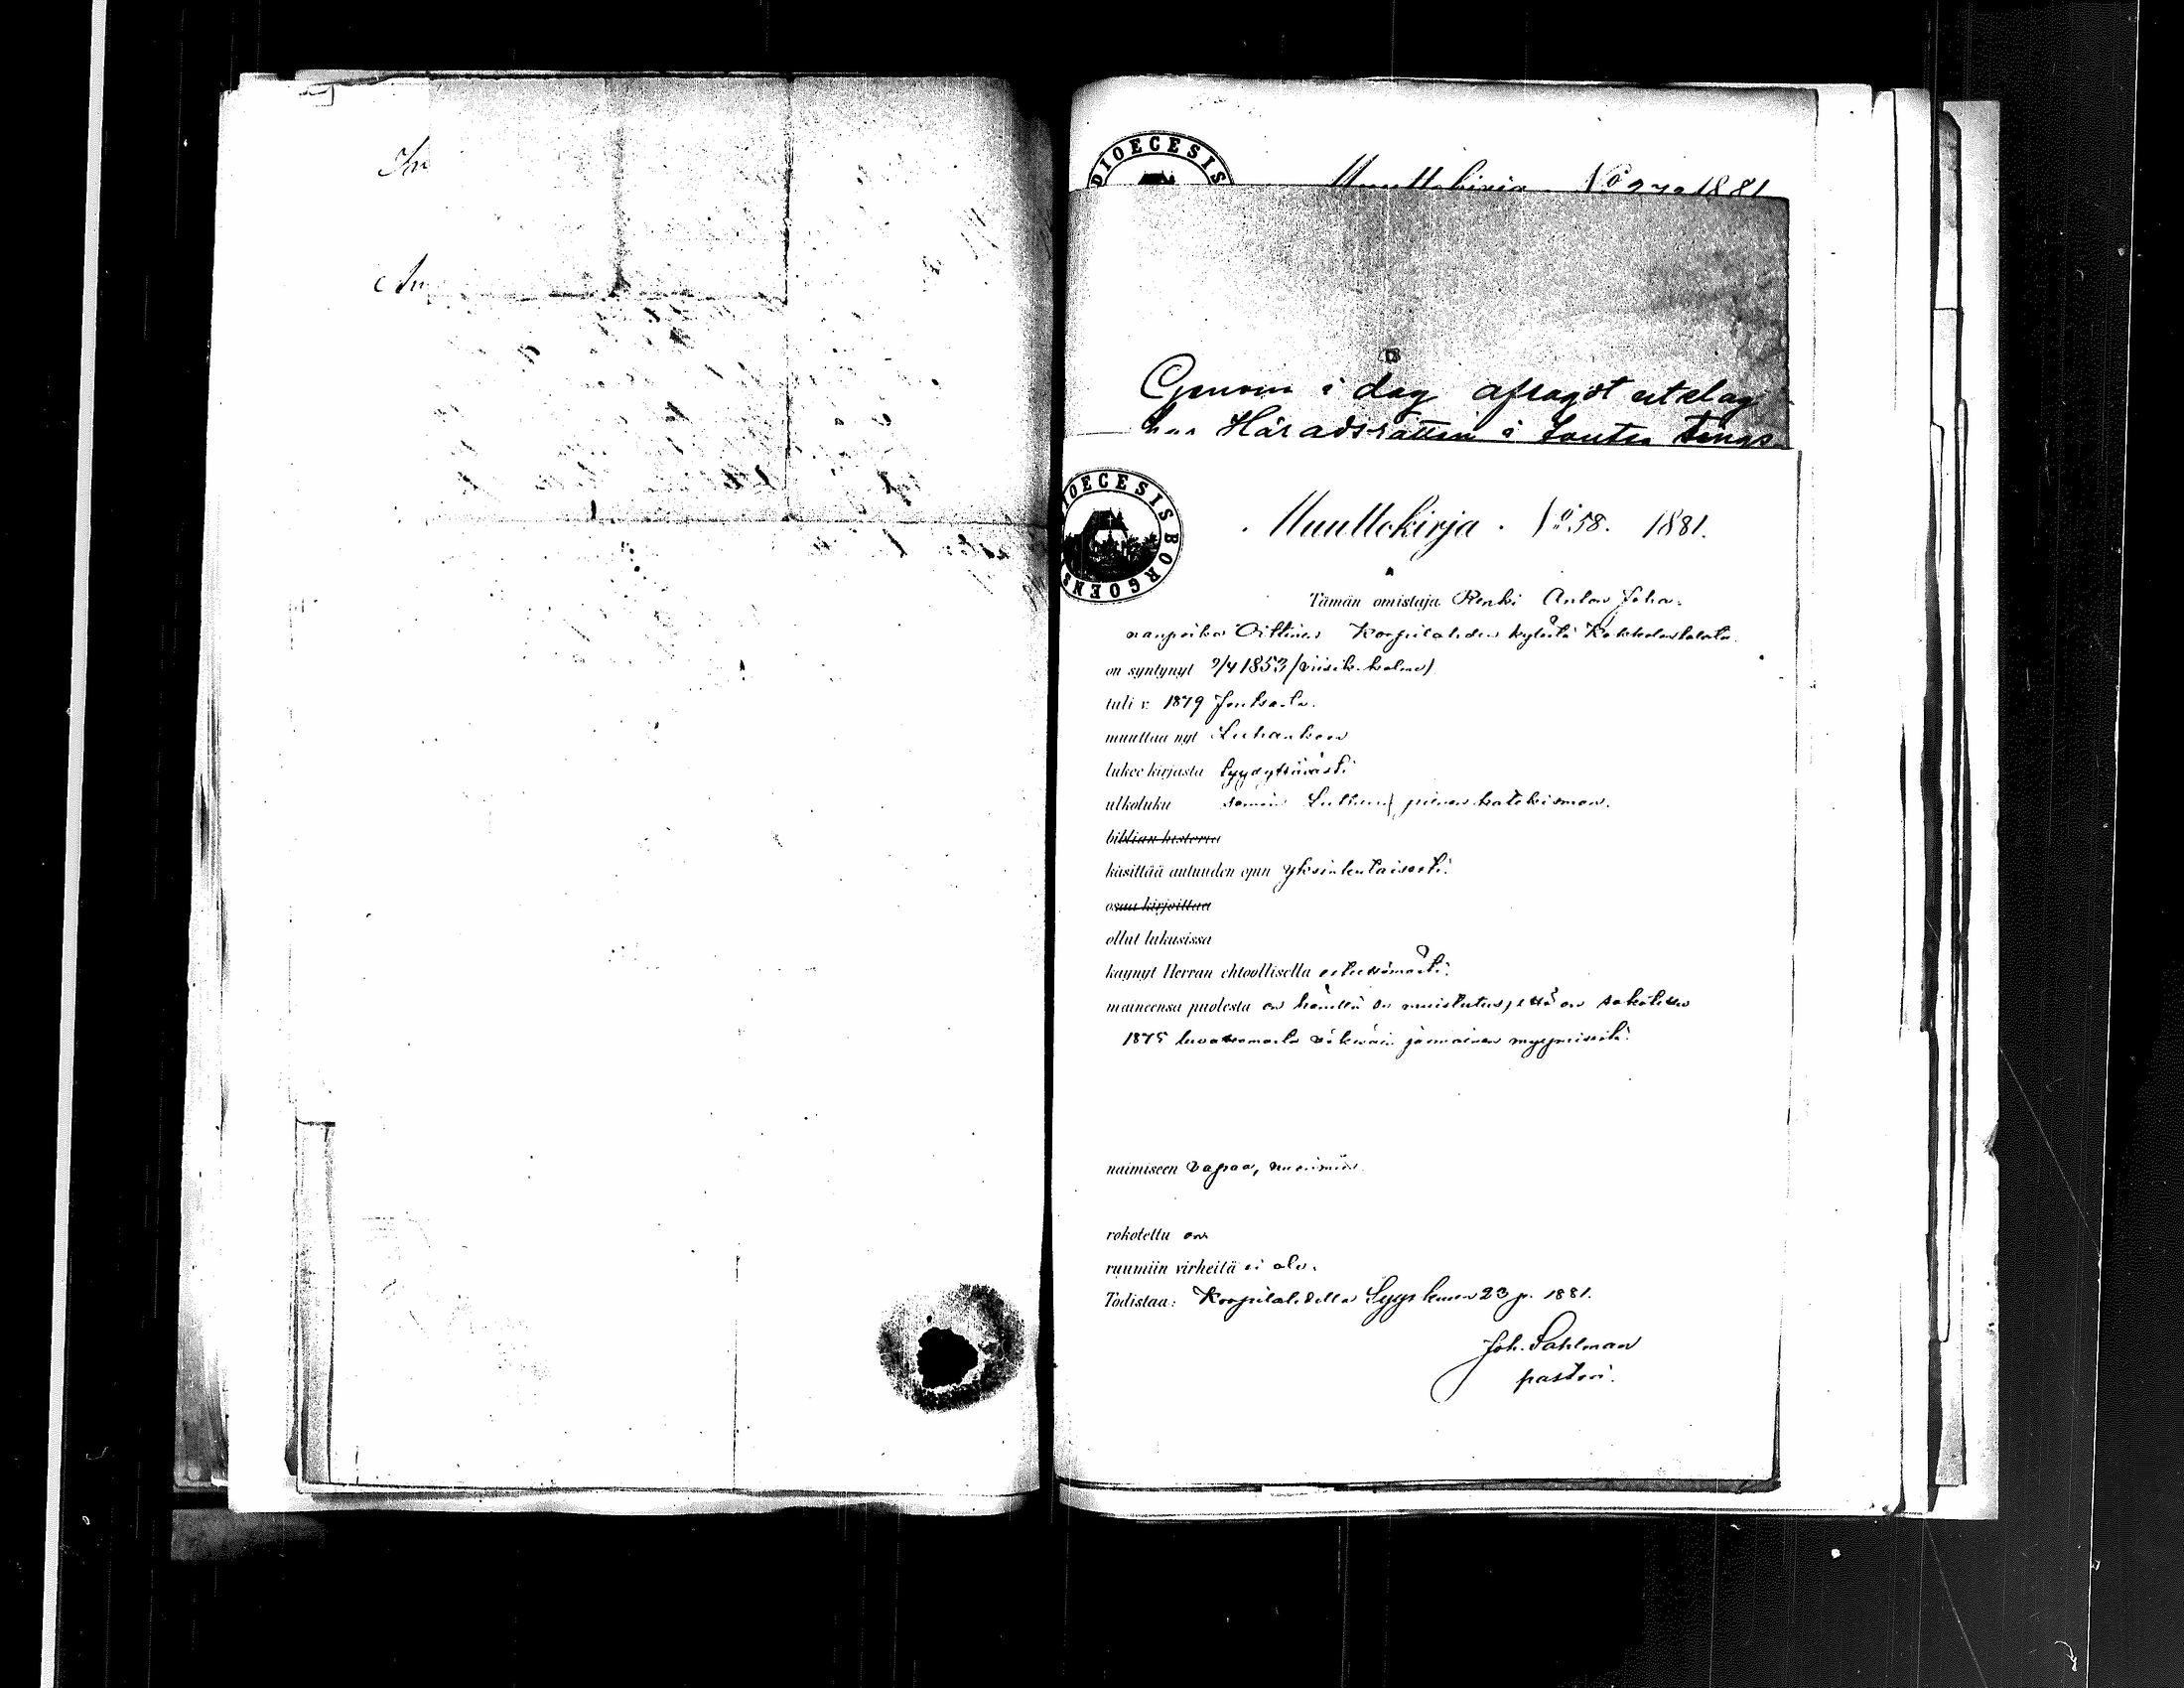 In
An
DIOECESIS
Muuttokirja No 1881
Genom i dag afsagdt utslag
har Häradsrätten i Joutsa Tings
DIOECESIS BORGOENS
Muuttokirja. No 58. 1881.
Tämän omistaja Renki Anton Johan-
nanpoika Oittinen Korpilahden kylästä
on syntynyt 2/4 1853 (viisik. kolme)
tuli v. 1879 Joutsasta.
muuttaa nyt Luhankaan
lukee kirjasta tyydyttävästi
ulkoluku samoin Lutherus pienen katekismon.
biblian historia
käsittää autuuden opin yksinkertaisesti.
osaa kirjoittaa
ollut lukusissa
käynyt Herran ehtoollisella esteettömästi.
maineensa puolesta on hänellä se muistutus, että on sakotettu
1875 luvattomasta väkeväin juomainen myymisestä.
naimiseen vapaa, nuorimies.
rokotettu on
ruumiin virheitä ei ole.
Todistaa: Korpilahdella Syyskuun 23 p. 1881.
Joh. Sahlman
pastori.